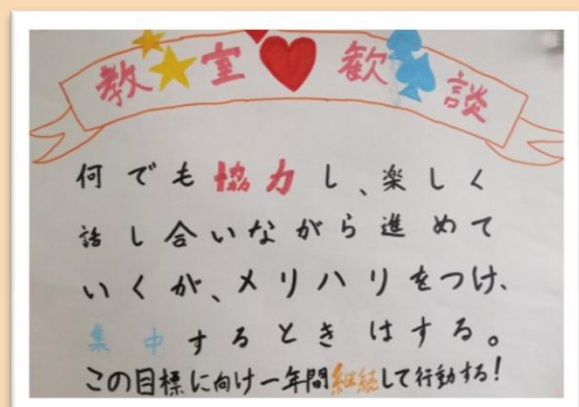 教室歓談
何でも協力し、楽しく
話し合いながら進めて
いくが、メリハリをつけ、
集中するときはする。
この目標に向け一年間継続して行動する!